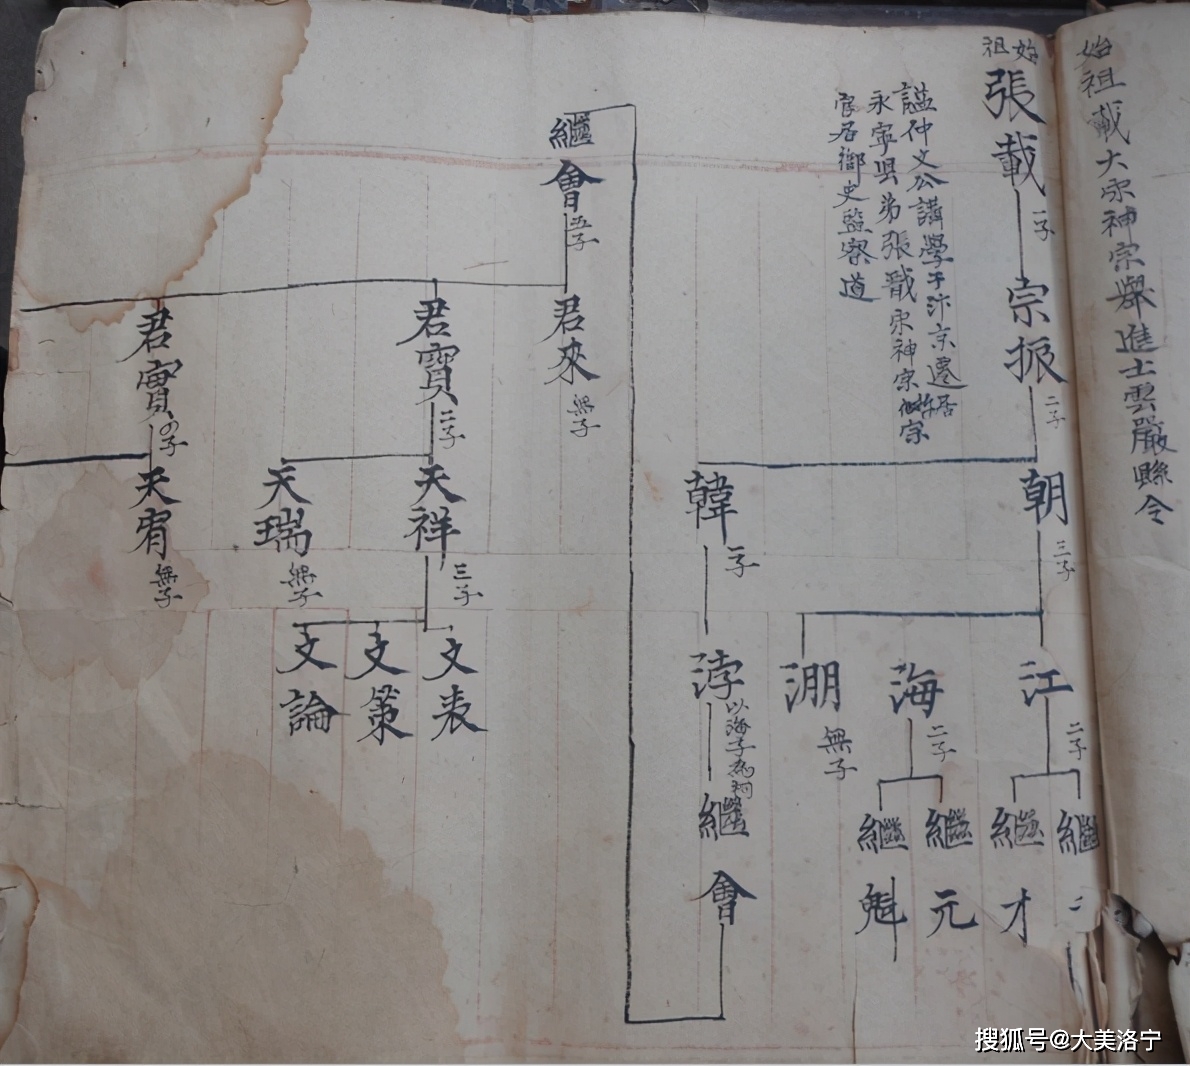 始祖載大宋神宗舉進士雲嚴縣令
始祖
張載
一子
宗振
二子
謚仲文公講學于汴京遷居
永寧縣弟張戩宋神宗
宗
官居御史監察道
朝
三子
韓
一子
江
二子
海
二子
淜
無子
浡
以海子為祠
繼
繼才
繼元
繼魁
繼會
繼會
五子
君來
無子
君寶
二子
君實
の子
天祥
三子
天瑞
無子
天宥
無子
文表
文策
文論
搜狐号@大美洛宁